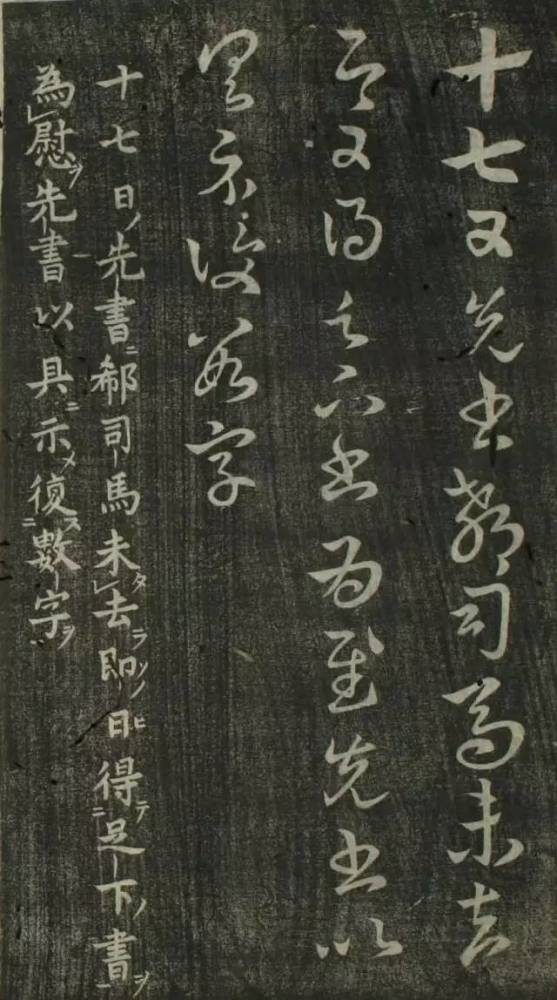 十七日先書郗司馬未去
即日得足下書為慰先書以
具示復數字
十七日ノ先書ニ郗司馬未タ去ラ即ソノ日ヒ得テ足下ノ書ヲ
為慰ヲ先書以具ニ示メス復ニ數字ヲ